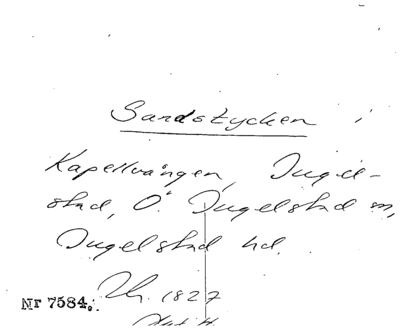 Sandstycken i
Kapellvången, Ingel-
stad, Ö. Ingelstad sn,
Ingelstad hd.
1827
Nr 7584.